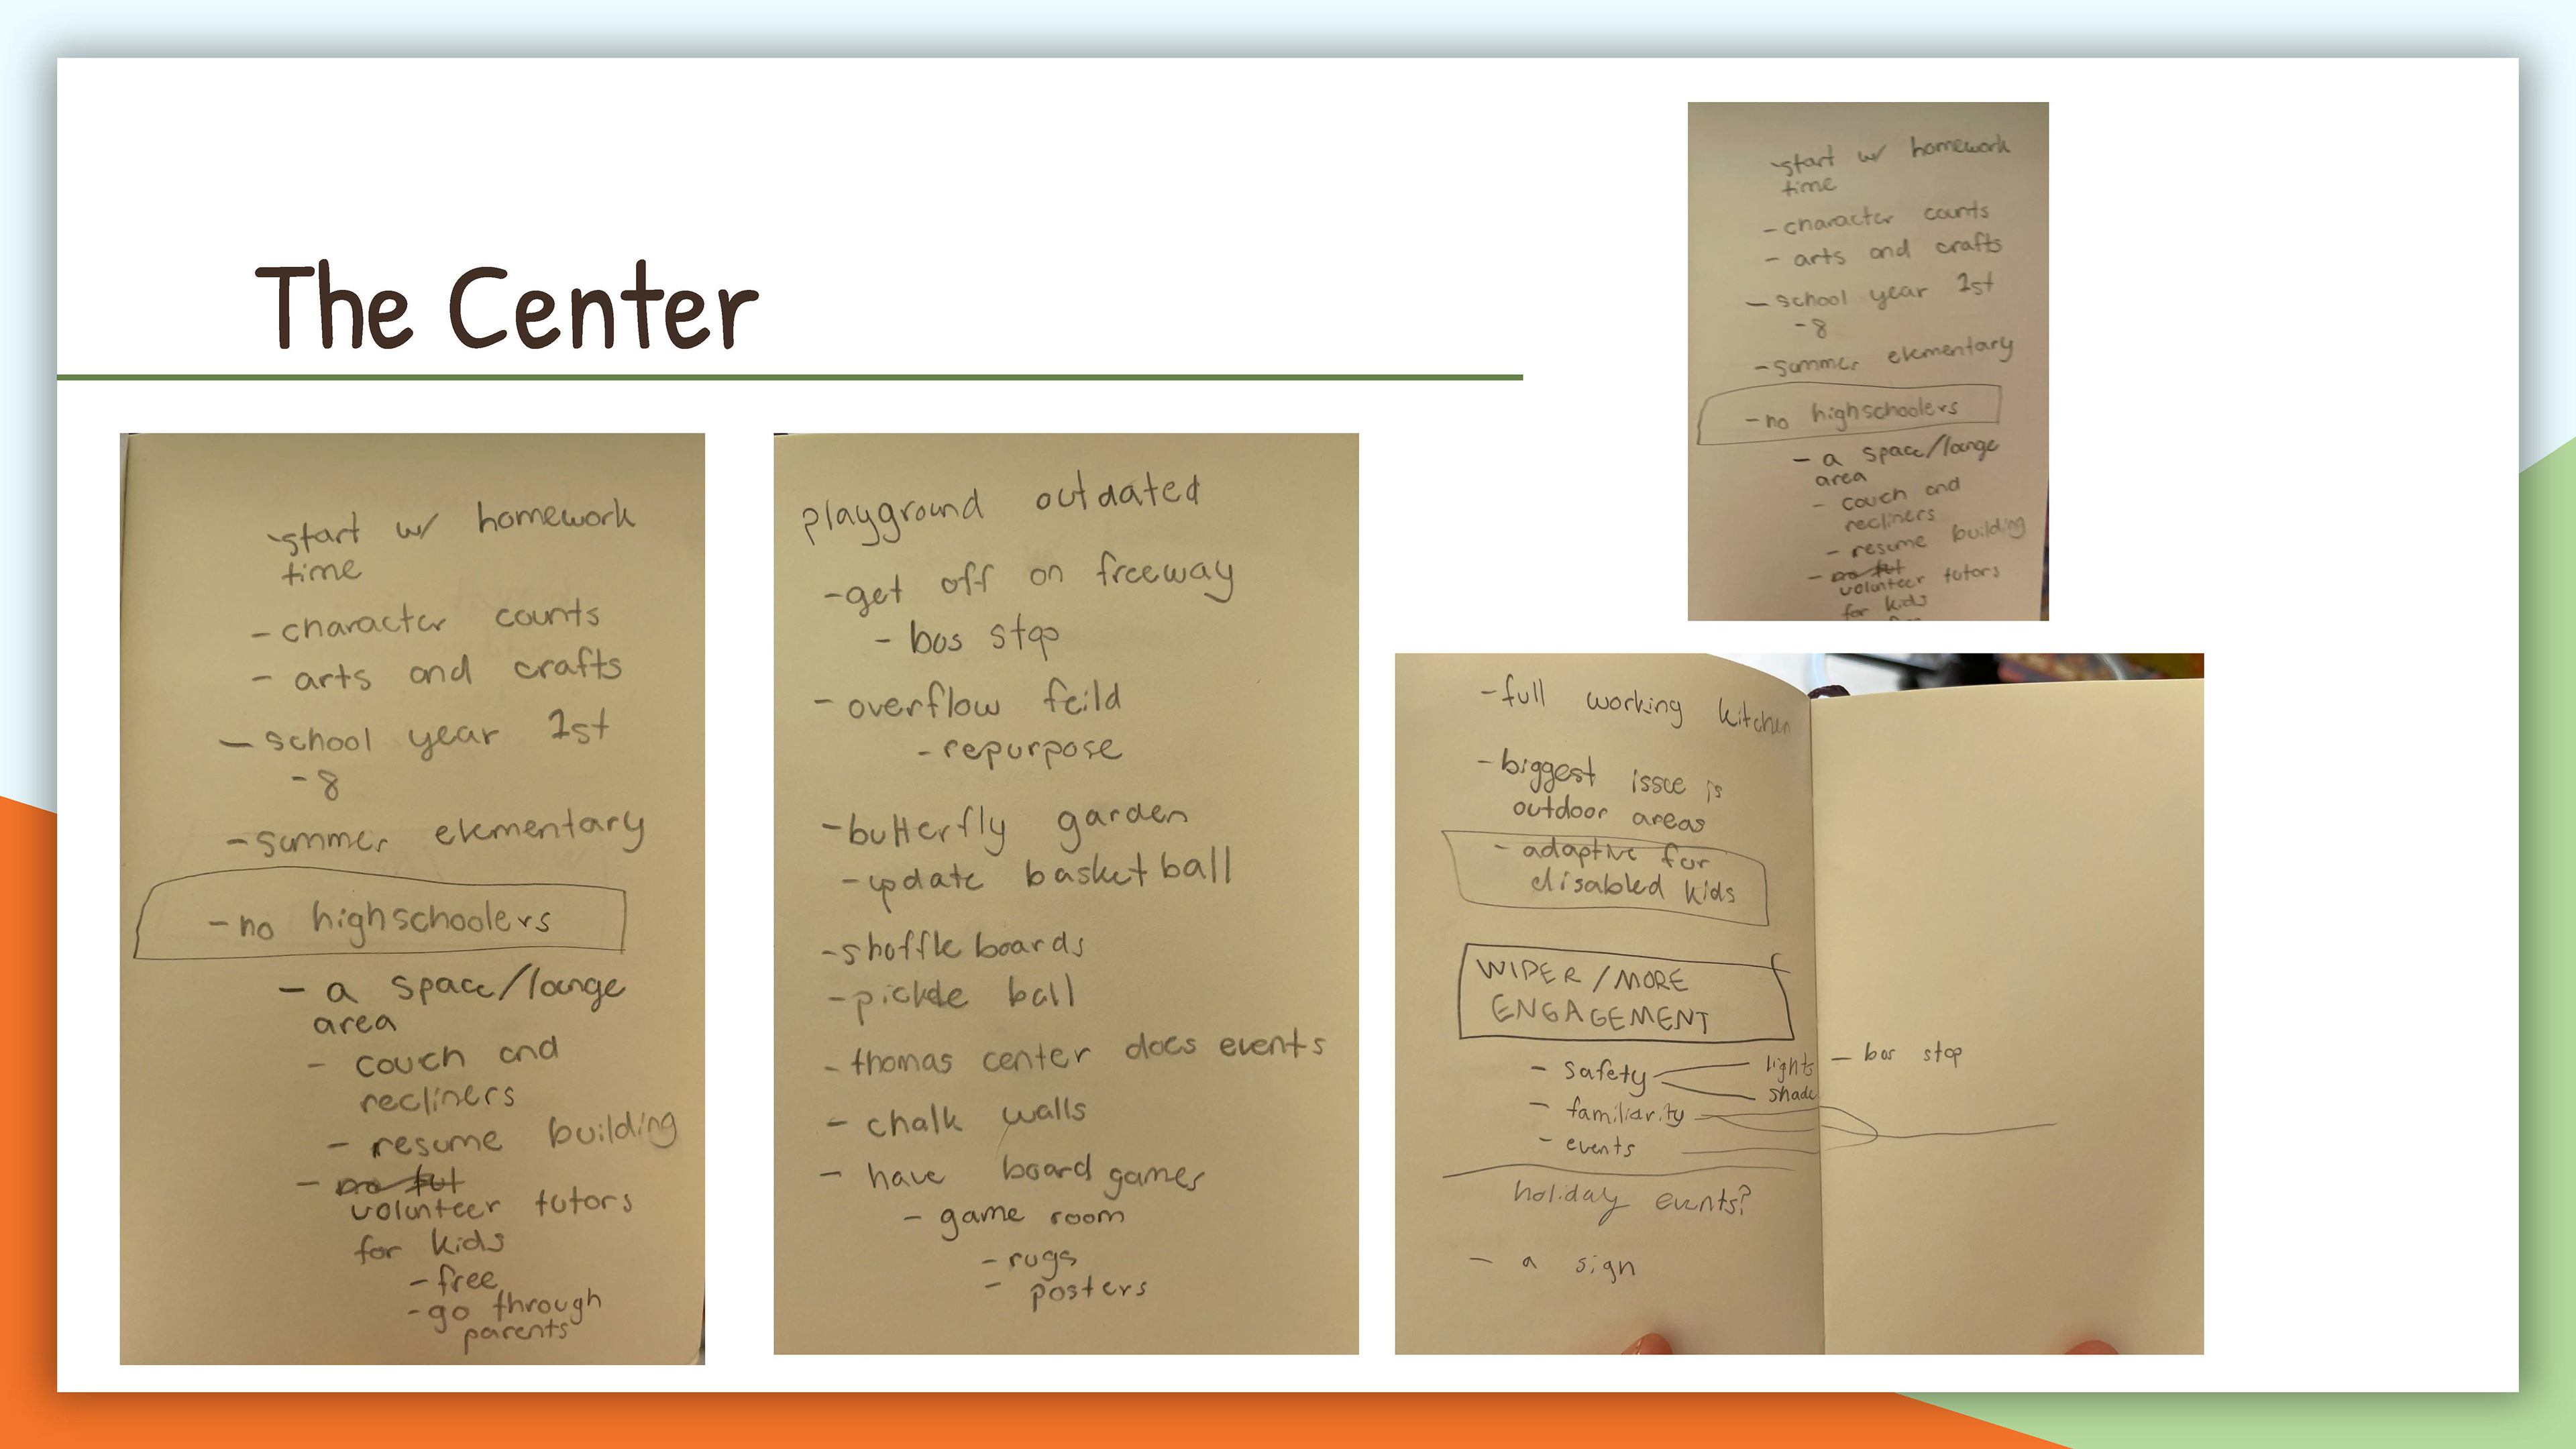 The Center
-start w/ homework
time
- character counts
- arts and crafts
- school year 1st
- 8
- summer elementary
- no highschoolers
- a space/lounge
area
- couch and
recliners
- resume building
- no tut
volunteer tutors
for kids
- free
- go through
parents
playground outdated
- get off on freeway
- bus stop
- overflow feild
- repurpose
- butterfly garden
- update basketball
- shuffle boards
- pickle ball
- thomas center does events
- chalk walls
- have board games
- game room
- rugs
- posters
-start w/ homework
time
- character counts
- arts and crafts
- school year 1st
- 8
- summer elementary
- no highschoolers
- a space/lounge
area
- couch and
recliners
- resume building
- no tut
volunteer tutors
for kids
- full working kitchen
- biggest issue is
outdoor areas
- adaptive for
disabled kids
WIDER/MORE
ENGAGEMENT
- safety lights - bus stop
shade
- familiarity
- events
holiday events?
- a sign